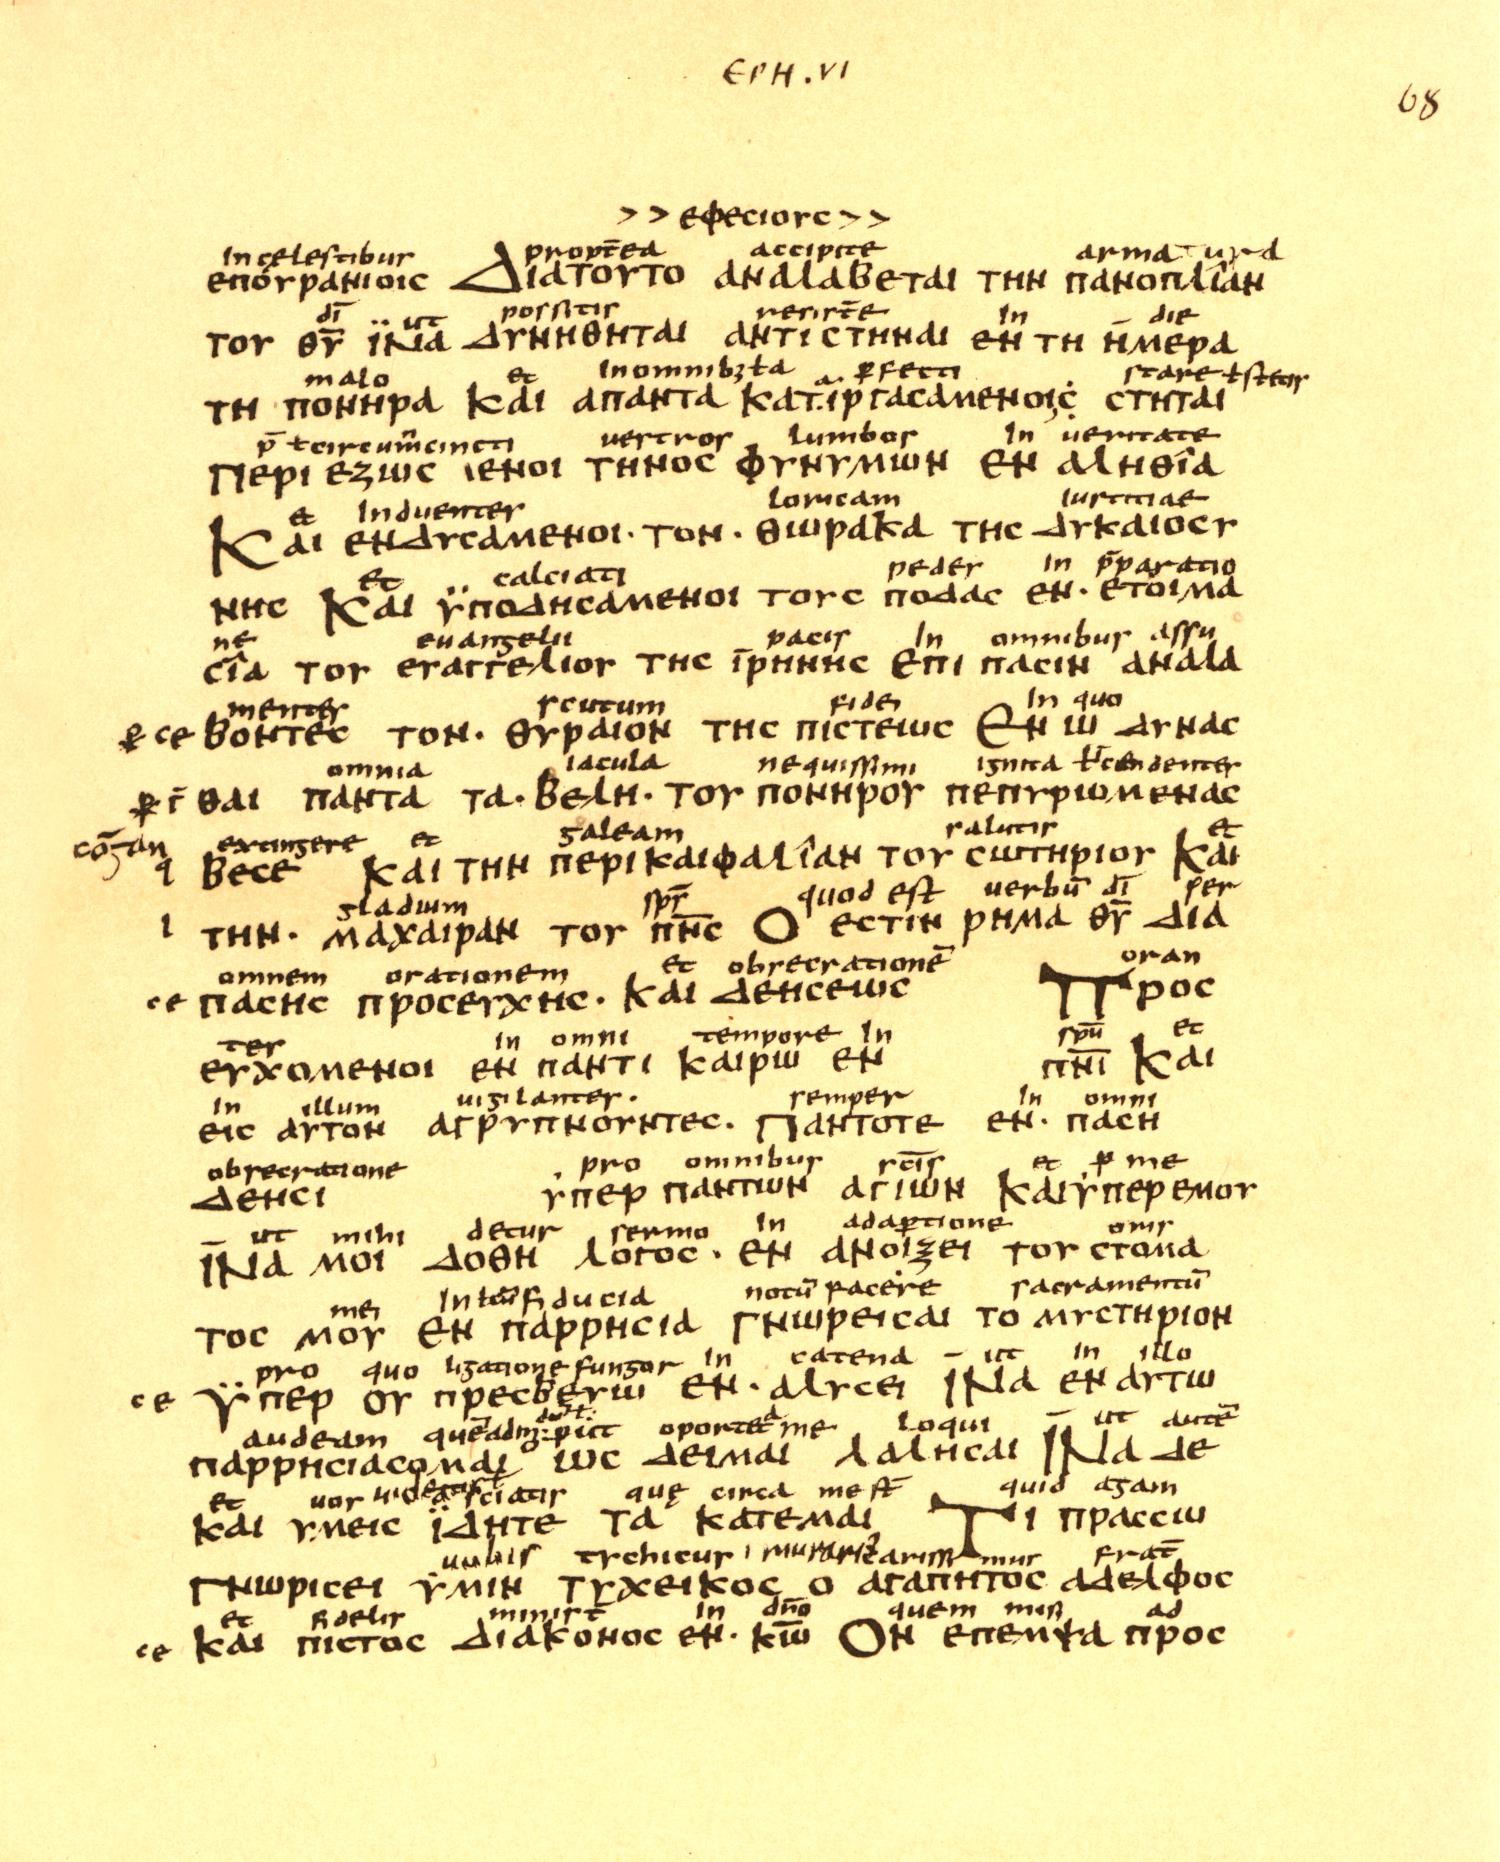 EPH. VI
68
>> εφεςιουc >>
In celestibus propt̄ea accipite armatura
επουρανιοιc Διατουτο αναλαβεται την πανοπλιαν
dī ut possitis resist̄e In die
του θῡ ϊνα δυνηθηται αντιcτηναι εν τη ημερα
malo et In omnibʒ ła ꝑfecti stare ł stetis
τη πονηρα και απαντα κατιργαcαμενοιc cτηται
p̄ ł circum̄cincti uestros lumbos In ueritate
Περι εζωc ιενοι τηνοc φυνυμων εν αληθια
et Induentes loricam iustitiae
Και ενδυcαμενοι· τον· θωρακα τηc δυκαιοcυ
et calciati pedes in p̄paratio
νηc Και ϋποδηcαμενοι τουc ποδαc εν· ετοιμα
ne euangelii pacis In omnibus assu
cια του ευαγγελιου τηc ιρηνηc Επι παcιν αναλα
mentes scutum fidei In quo
ꝑ ce βοντεc τον· θυραιον τηc πιcτεωc Εν ω δυναc
omnia iacula nequissimi ignita ł incendentes
ꝑ ι̅ θαι παντα τα· βελη· του πονηρου πεπυριωμεναc
extingere et galeam salutis et
q βεcε και την περικαιφαλιαν του cωτηριου και
gladium sp̄s quod est uerbū dī per
ι την· μαχαιραν του πν̄c Ο εcτιν ρημα θῡ δια
omnem orationem et obsecrationē oran
ce παcηc προcευχηc· και δεηcεωc Προc
tes in omni tempore In spū et
ευχομενοι εν παντι καιρω εν πνῑ Και
In illum uigilantes· semper In omni
ειc αυτον αγρυπνουντεc· Παντοτε εν· παcη
obsecratione pro omnibus sc̄is et ꝑ me
δεηcι υπερ παντων αγιων και υπερ εμου
ut mihi detur sermo in adaꝑtione oris
Ινα μοι δοθη λογοc· εν ανοιξει του cτομα
mei In fiducia notū facere sacramentū
τοc μου εν παρρηcια γνωρειcαι το μυcτηριον
pro quo legatione fungor in catena ut in illo
ce ϋπερ ου πρεcβευω εν· αλυcει ινα εν αυτω
audeam quēadm oportet me loqui ut autē
παρρηcιαcομαι ωc δειμαι λαληcαι Ινα δε
et uos sciatis quę circa me sт̄ quid agam
και υμειc ϊδητε τα κατεμαι Τι πραccω
uobis tychicus carissimus frat̄
γνωριcει υμιν τυχεικοc ο αγαπητοc αδελφοc
et fidelis minist̄ in dn̄o quem misi ad
ce και πιcτοc διακονοc εν· κω̄ Ον επεμψα προc